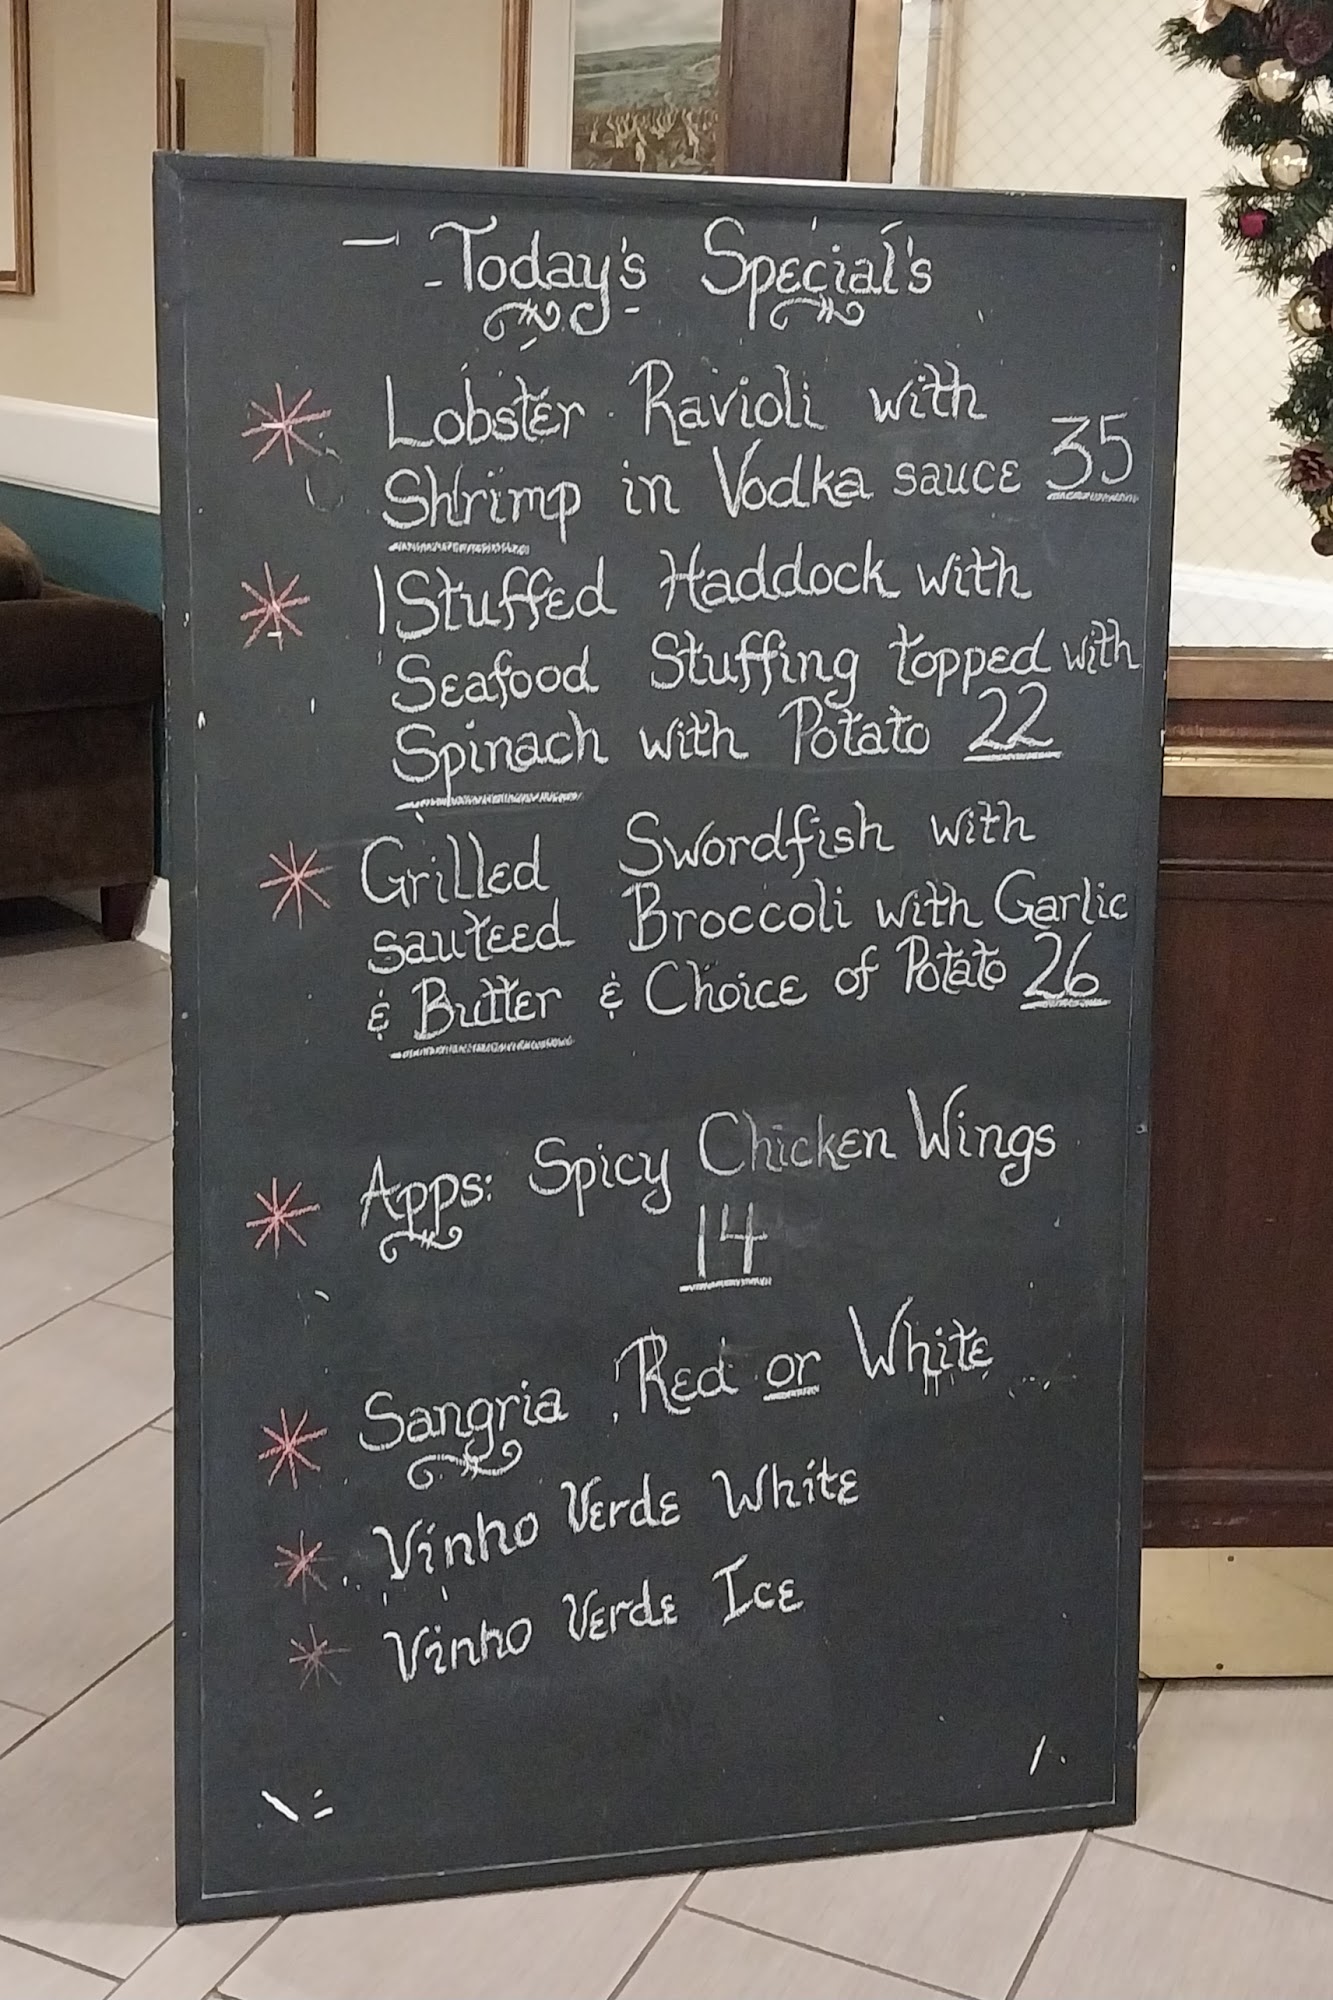 Today's Special's
Lobster Ravioli with
Shrimp in Vodka sauce 35
Stuffed Haddock with
Seafood Stuffing topped with
Spinach with Potato 22
Grilled Swordfish with
sauteed Broccoli with Garlic
& Butter & Choice of Potato 26
Apps: Spicy Chicken Wings
14
Sangria Red or White
Vinho Verde White
Vinho Verde Ice